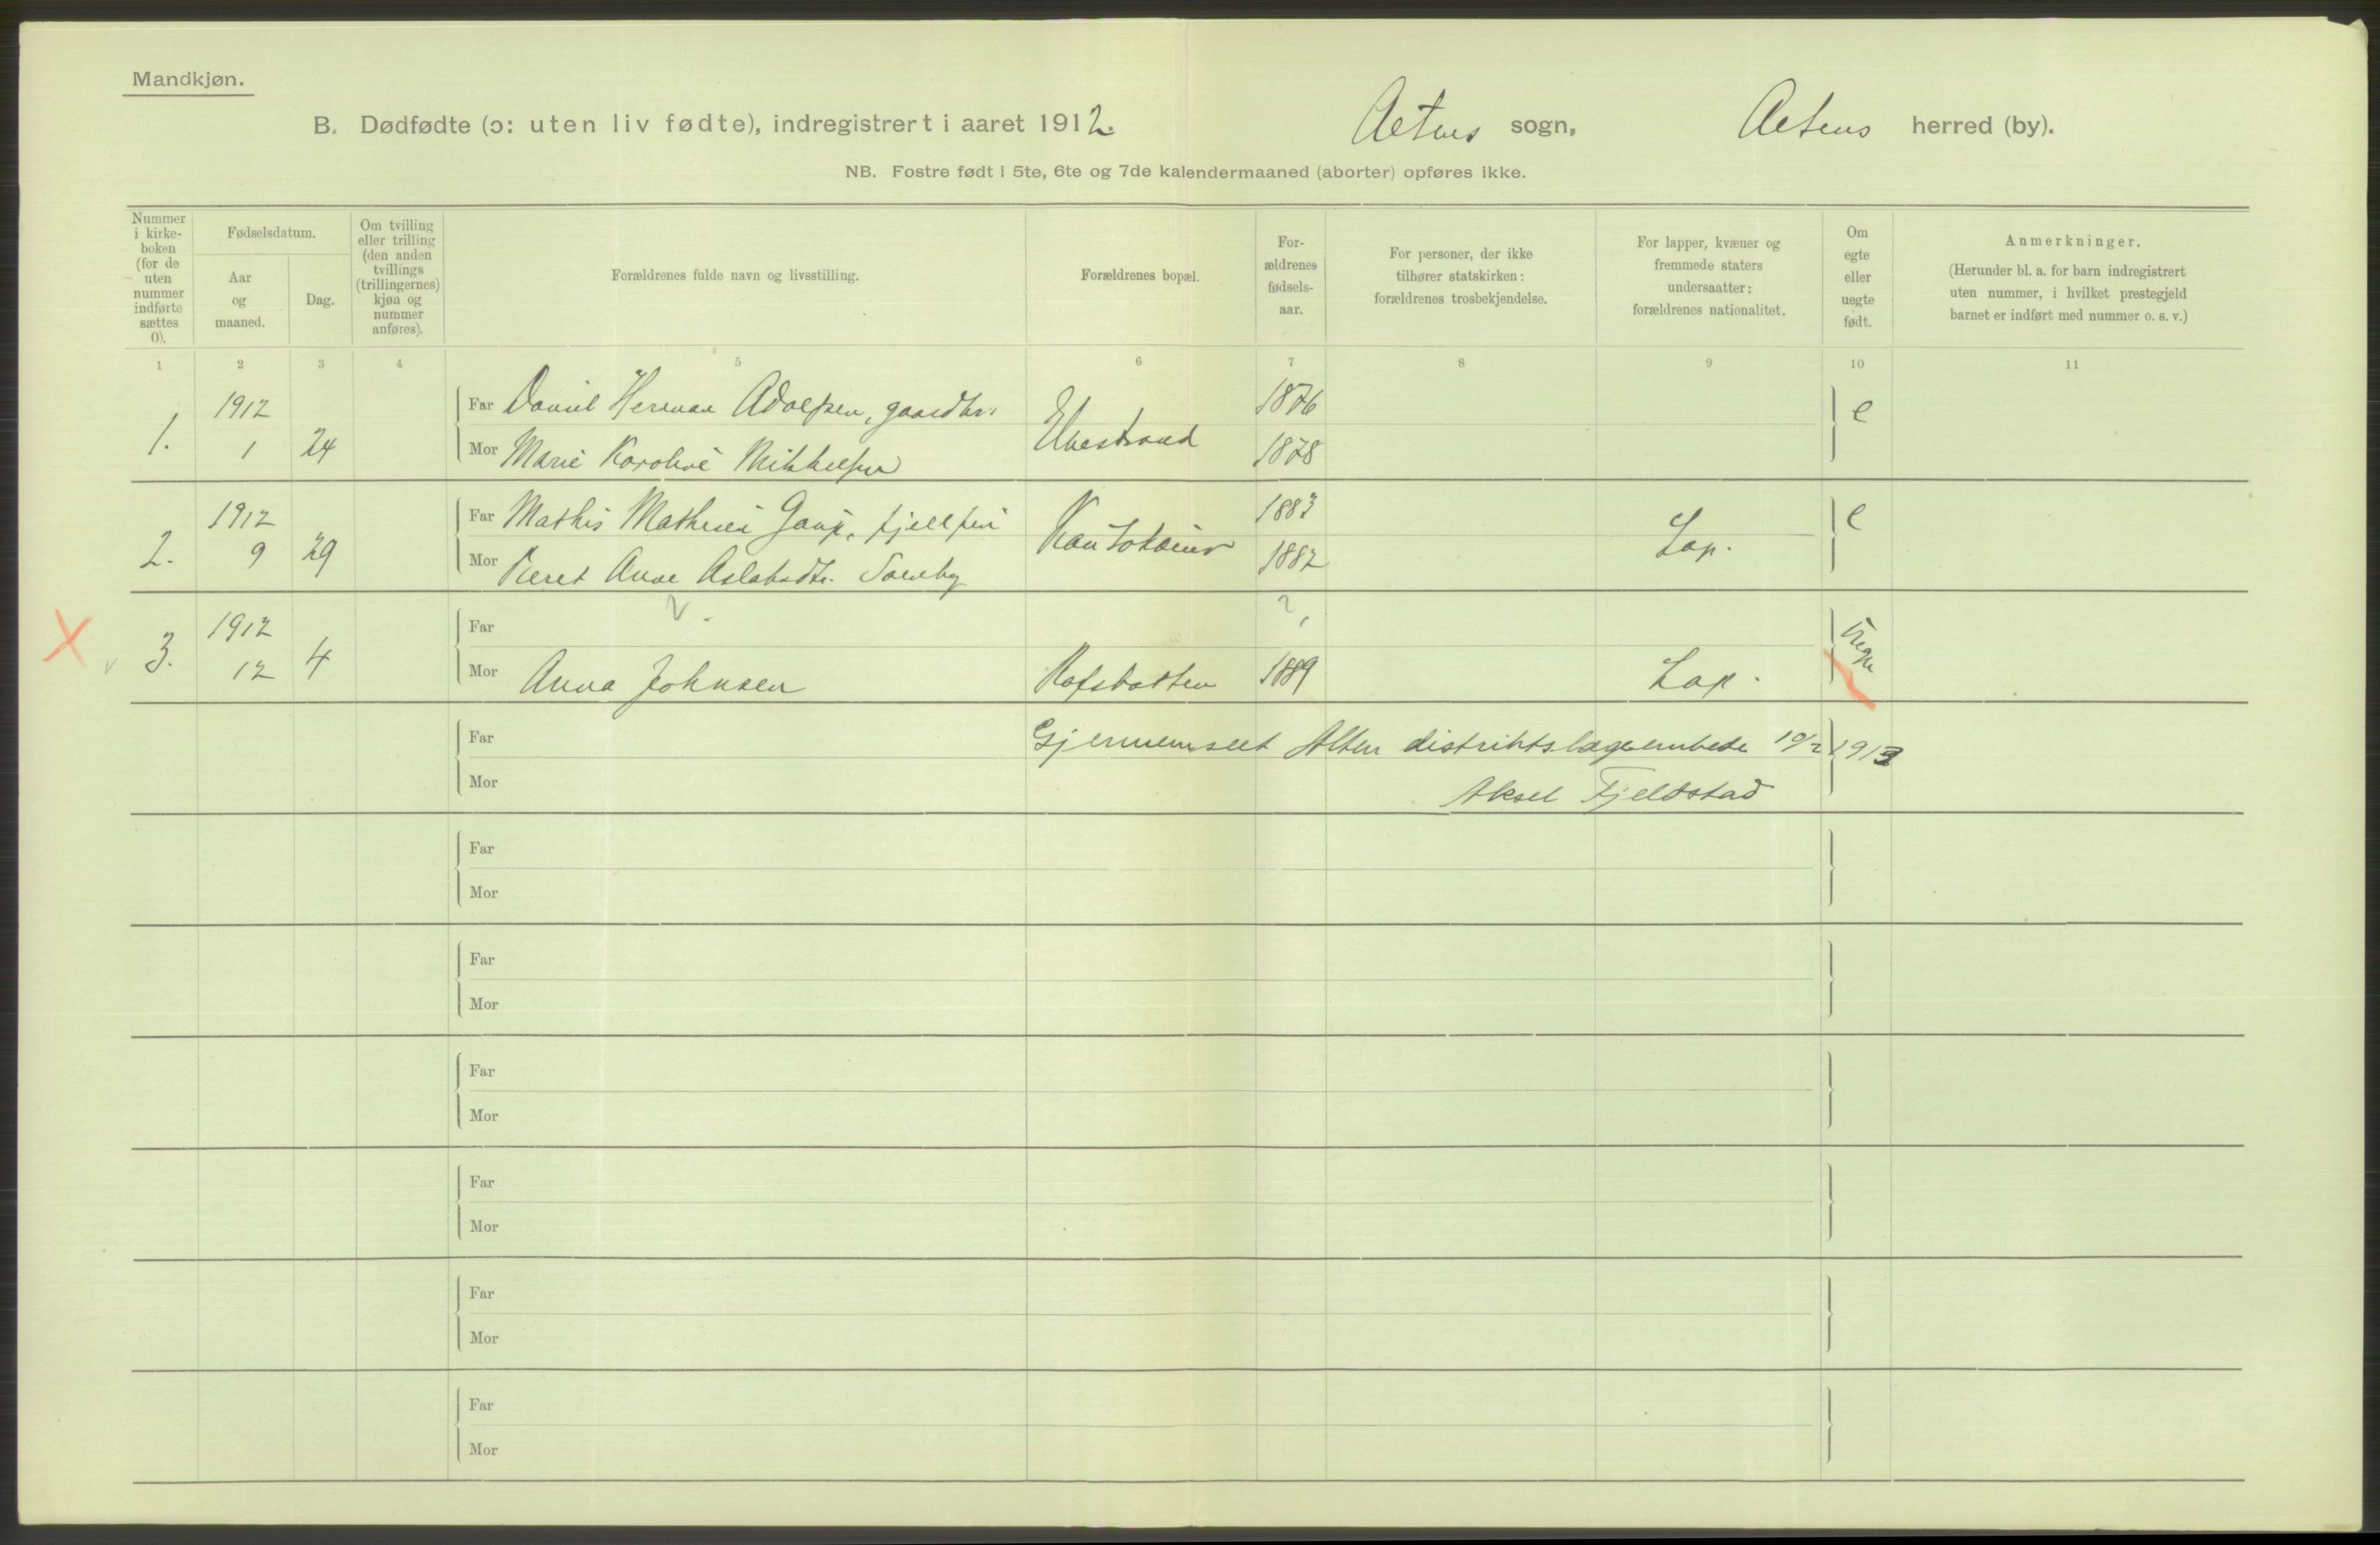 Mandkjøn.
B. Dødfødte (ɔ: uten liv fødte), indregistrert i aaret 1912. Altens sogn, Altens herred (by).
NB. Fostre født i 5te, 6te og 7de kalendermaaned (aborter) opføres ikke.
Nummer i kirke-boken (for de uten nummer indførte sættes 0).
Fødselsdatum.
Aar og maaned.
Dag.
Om tvilling eller trilling (den anden tvillings (trillingernes) kjøn og nummer anføres).
Forældrenes fulde navn og livsstilling.
Forældrenes bopæl.
For-ældrenes fødsels-aar.
For personer, der ikke tilhører statskirken: forældrenes trosbekjendelse.
For lapper, kvæner og fremmede staters undersaatter: forældrenes nationalitet.
Om egte eller uegte født.
Anmerkninger.
(Herunder bl. a. for barn indregistrert uten nummer, i hvilket prestegjeld barnet er indført med nummer o. s. v.)
1 2 3 4 5 6 7 8 9 10 11
1912 Far Daniel Herman Adolfsen, gaardbr. 1876 e
1. 1 24 Mor Marie Karoline Mikkelsen Elvestrand 1878
1912 Far Mathis Mathisen Gaup, fjellfin 1883 e
2. 9 29 Mor Beret Anne Aslaksdtr. Kautokeino 1882 Lap.
1912 Far ? ?
3. 12 4 Mor Anna Johnsen Rafsbotten 1889 Lap. uegte
Far Gjennemseet Alten distriktslægeembede 10/2 1913
Mor Aksel Fjeldstad
Far
Mor
Far
Mor
Far
Mor
Far
Mor
Far
Mor
Far
Mor